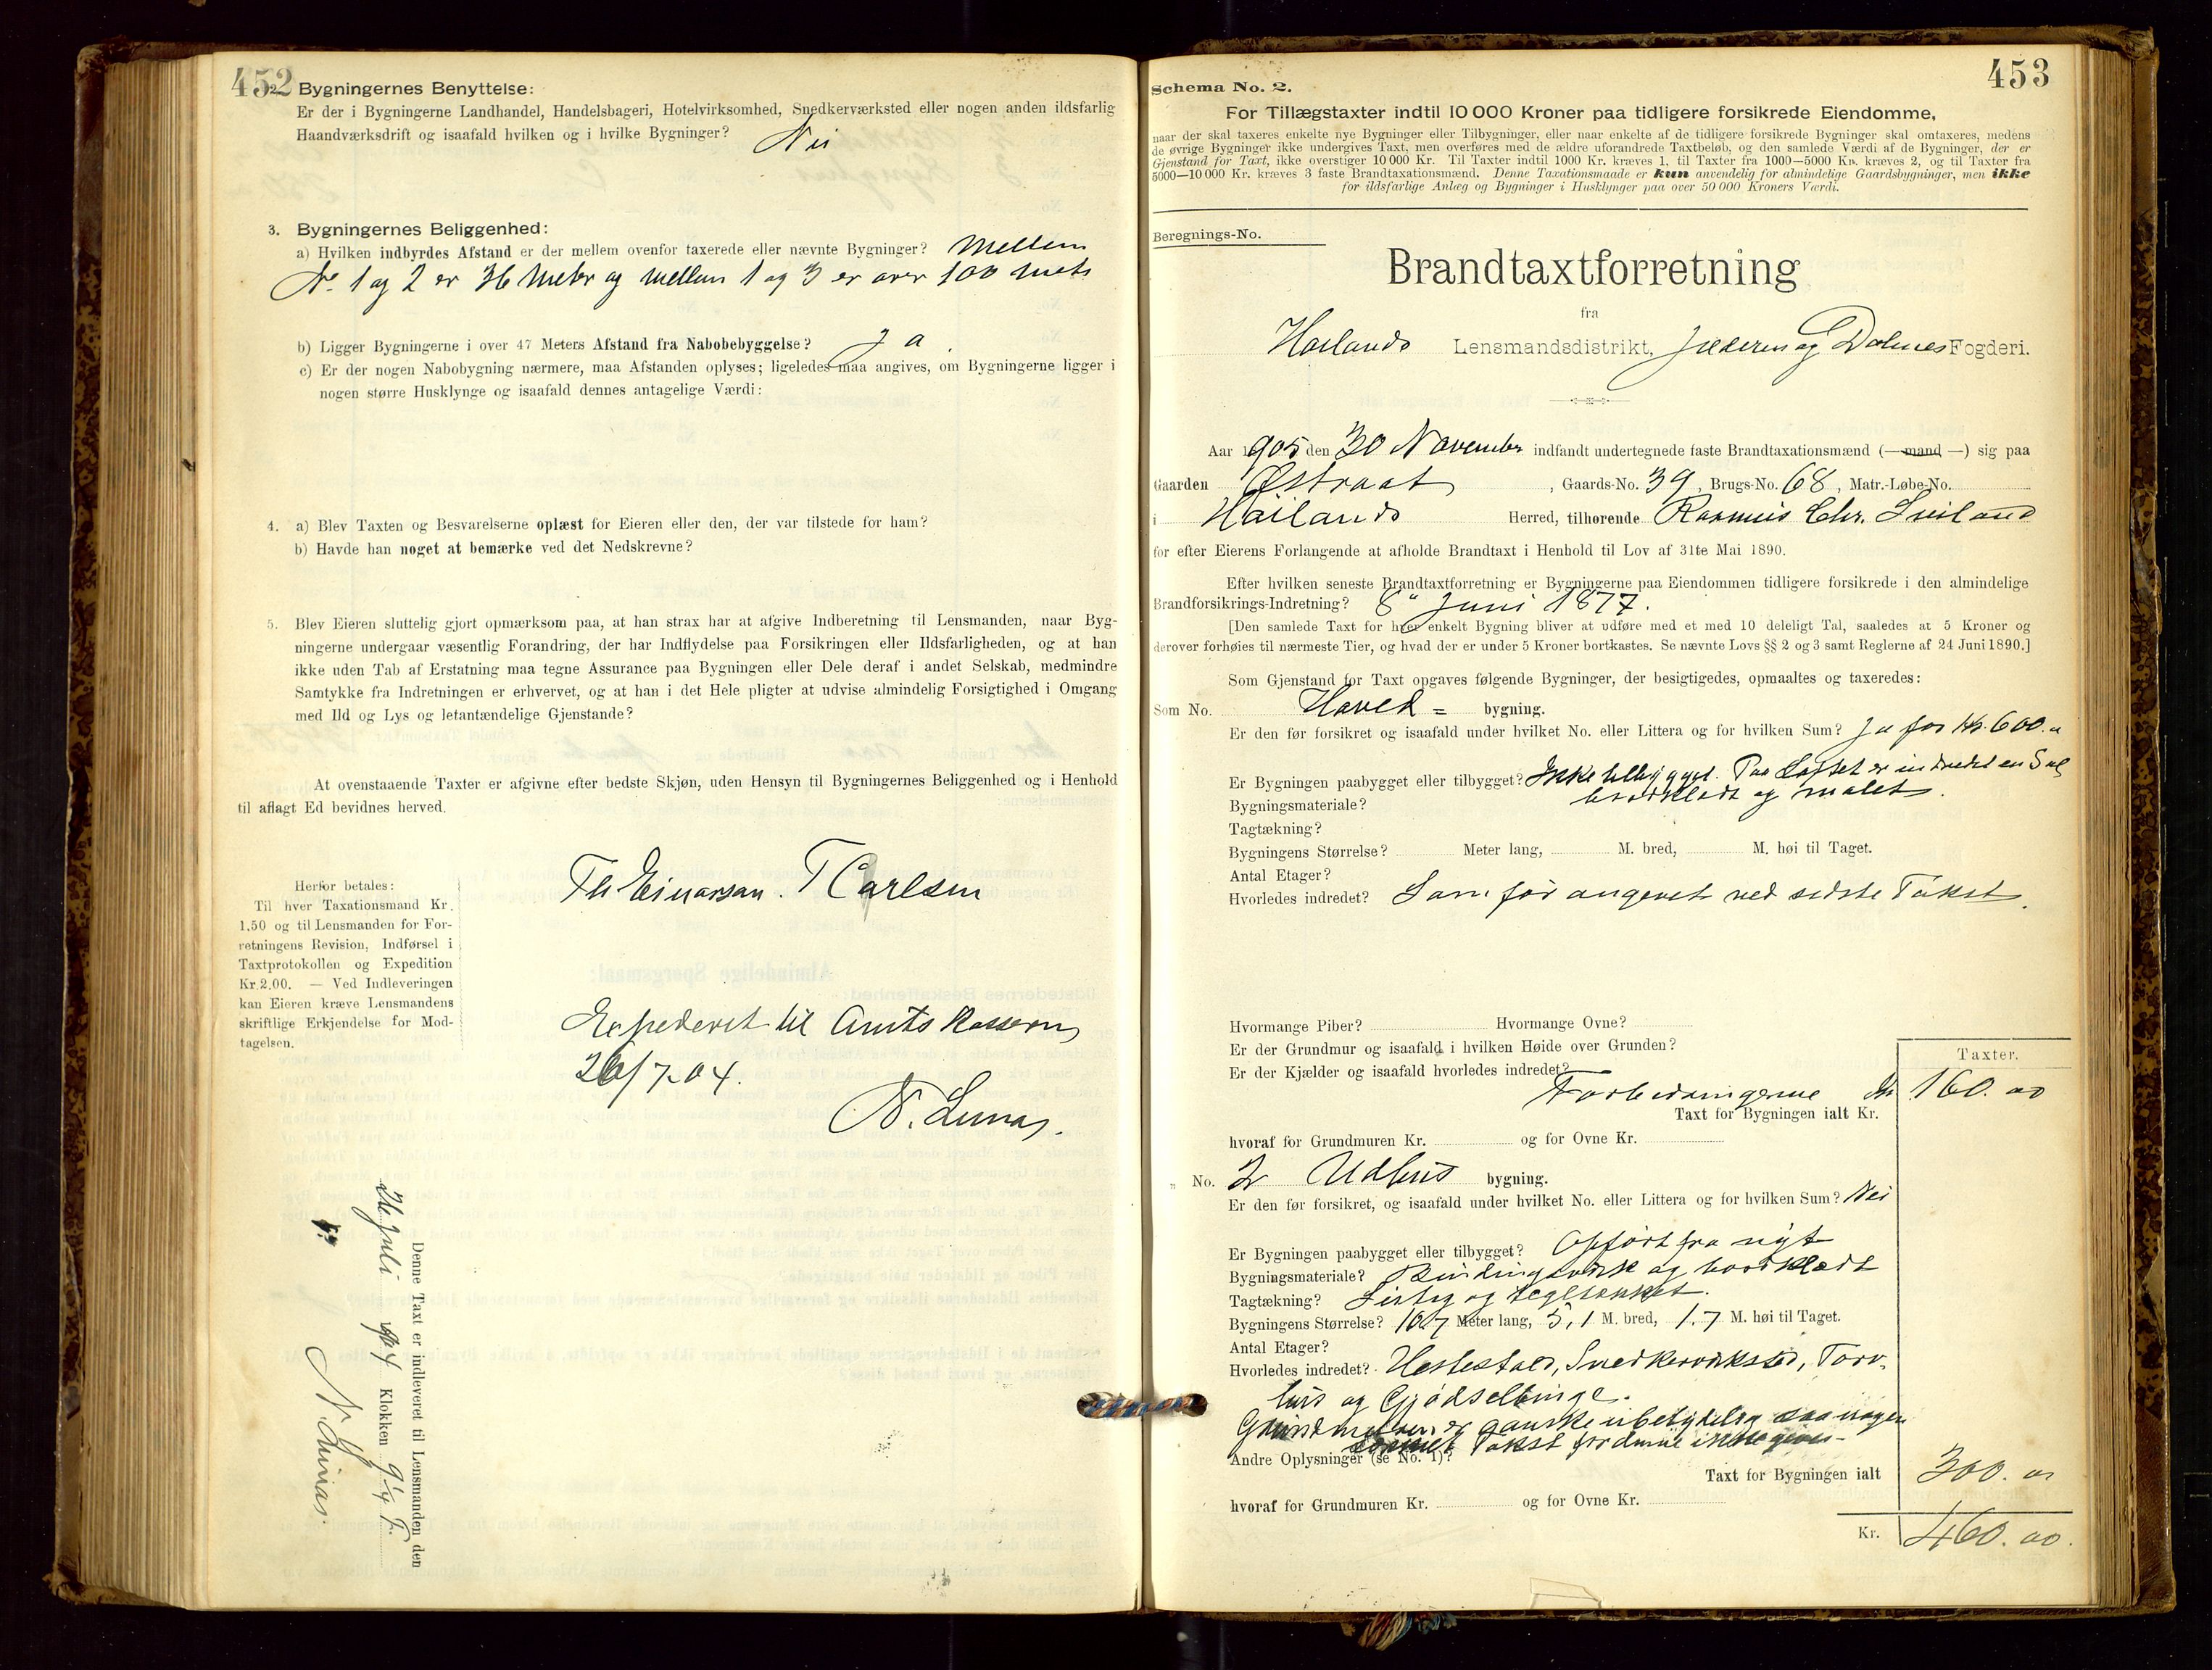 452
2. Bygningernes Benyttelse:
Er der i Bygningerne Landhandel, Handelsbageri, Hotelvirksomhed, Snedkerværksted eller nogen anden ildsfarlig
Haandværksdrift og isaafald hvilken og i hvilke Bygninger? Nei
3. Bygningernes Beliggenhed:
a) Hvilken indbyrdes Afstand er der mellem ovenfor taxerede eller nævnte Bygninger? Mellem
No 1 og 2 er 36 Meter og mellem 1 og 3 er over 100 mets
b) Ligger Bygningerne i over 47 Meters Afstand fra Nabobebyggelse? Ja.
c) Er der nogen Nabobygning nærmere, maa Afstanden oplyses; ligeledes maa angives, om Bygningerne ligger i
nogen større Husklynge og isaafald dennes antagelige Værdi:
4. a) Blev Taxten og Besvarelserne oplæst for Eieren eller den, der var tilstede for ham?
b) Havde han noget at bemærke ved det Nedskrevne?
5. Blev Eieren sluttelig gjort opmærksom paa, at han strax har at afgive Indberetning til Lensmanden, naar Byg-
ningerne undergaar væsentlig Forandring, der har Indflydelse paa Forsikringen eller Ildsfarligheden, og at han
ikke uden Tab af Erstatning maa tegne Assurance paa Bygningen eller Dele deraf i andet Selskab, medmindre
Samtykke fra Indretningen er erhvervet, og at han i det Hele pligter at udvise almindelig Forsigtighed i Omgang
med Ild og Lys og letantændelige Gjenstande?
At ovenstaaende Taxter er afgivne efter bedste Skjøn, uden Hensyn til Bygningernes Beliggenhed og i Henhold
til aflagt Ed bevidnes herved.
Th Einarsen. T Carlsen
Herfor betales:
Til hver Taxationsmand Kr.
1,50 og til Lensmanden for For-
retningens Revision, Indførsel i
Taxtprotokollen og Expedition
Kr. 2.00. — Ved Indleveringen
kan Eieren kræve Lensmandens
skriftlige Erkjendelse for Mod-
tagelsen.
Expederet til Amtskassern
26/7-04.
Denne Taxt er indleveret til Lensmanden den
26 Juli 1904 Klokken 9 1/4 F.
453
Schema No. 2.
For Tillægstaxter indtil 10 000 Kroner paa tidligere forsikrede Eiendomme,
naar der skal taxeres enkelte nye Bygninger eller Tilbygninger, eller naar enkelte af de tidligere forsikrede Bygninger skal omtaxeres, medens
de øvrige Bygninger ikke undergives Taxt, men overføres med de ældre uforandrede Taxtbeløb, og den samlede Værdi af de Bygninger, der er
Gjenstand for Taxt, ikke overstiger 10 000 Kr. Til Taxter indtil 1000 Kr. kræves 1, til Taxter fra 1000—5000 Kr. kræves 2, og til Taxter fra
5000—10 000 Kr. kræves 3 faste Brandtaxationsmænd. Denne Taxationsmaade er kun anvendelig for almindelige Gaardsbygninger, men ikke
for ildsfarlige Anlæg og Bygninger i Husklynger paa over 50 000 Kroners Værdi.
Beregnings-No.
Brandtaxtforretning
fra
Hailands Lensmandsdistrikt, Jæderen og Dalnes Fogderi.
Aar 1905 den 30 November indfandt undertegnede faste Brandtaxationsmænd (—mand —) sig paa
Gaarden Østraat, Gaards-No. 39, Brugs-No. 68, Matr.-Løbe-No.
i Hailands Herred, tilhørende Rasmus Chr. Sviland
for efter Eierens Forlangende at afholde Brandtaxt i Henhold til Lov af 31te Mai 1890.
Efter hvilken seneste Brandtaxtforretning er Bygningerne paa Eiendommen tidligere forsikrede i den almindelige
Brandforsikrings-Indretning? 8" Juni 1877.
[Den samlede Taxt for hver enkelt Bygning bliver at udføre med et med 10 deleligt Tal, saaledes at 5 Kroner og
derover forhøies til nærmeste Tier, og hvad der er under 5 Kroner bortkastes. Se nævnte Lovs §§ 2 og 3 samt Reglerne af 24 Juni 1890.]
Som Gjenstand for Taxt opgaves følgende Bygninger, der besigtigedes, opmaaltes og taxeredes:
Som No. Hoved = bygning.
Er den før forsikret og isaafald under hvilket No. eller Littera og for hvilken Sum? Ja for Kr. 600.
Er Bygningen paabygget eller tilbygget? Ikke tilbygget. Paa Loftet er indredet en Sal
bordklædt og malet.
Bygningsmateriale?
Tagtækning?
Bygningens Størrelse? Meter lang, M. bred, M. høi til Taget.
Antal Etager?
Hvorledes indredet? Som før angevet ved sidste Takst.
Hvormange Piber? Hvormange Ovne?
Er der Grundmur og isaafald i hvilken Høide over Grunden?
Er der Kjælder og isaafald hvorledes indredet?
Taxter.
Forbedringerne Kr 160. 00
Taxt for Bygningen ialt Kr.
hvoraf for Grundmuren Kr. og for Ovne Kr.
" No. 2 Udhus bygning.
Er den før forsikret, og isaafald under hvilket No. eller Littera og for hvilken Sum? Nei
Er Bygningen paabygget eller tilbygget? Opført fra nyt
Bygningsmateriale? Bindingsværk og bordklædt
Tagtækning? og teglsænket.
Bygningens Størrelse? 10.7 Meter lang, 5,1 M. bred, 1.7 M. høi til Taget.
Antal Etager?
Hvorledes indredet? Hestestald, Snedkerværksted, Torv-
hus og Gjødselbinge.
Grundmuren er ganske ubetydelig saa nogen
Takst for denne ikke gives
Andre Oplysninger (se No. 1)?
Taxt for Bygningen ialt 300. 00
hvoraf for Grundmuren Kr. og for Ovne Kr.
Kr. 460. 00.